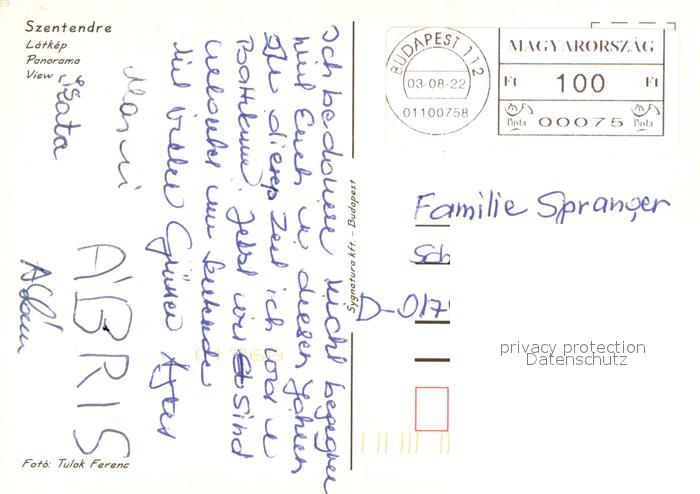 Szentendre
Látkép
Panorama
View
Ich bedauere nicht begegnen
mit Euch in diesen Jahren
In dieser Zeit ich war in
Praktikum Jetzt wir sind
mit vielen Grüssen
ÁBRIS
Ádám
Fotó: Tulok Ferenc
Sygnatura kft. – Budapest
BUDAPEST 112
03-08-22
01100758
MAGYARORSZÁG
Ft 100 Ft
Posta 00075 Posta
Familie Spranger
Sch
D-017
privacy protection
Datenschutz